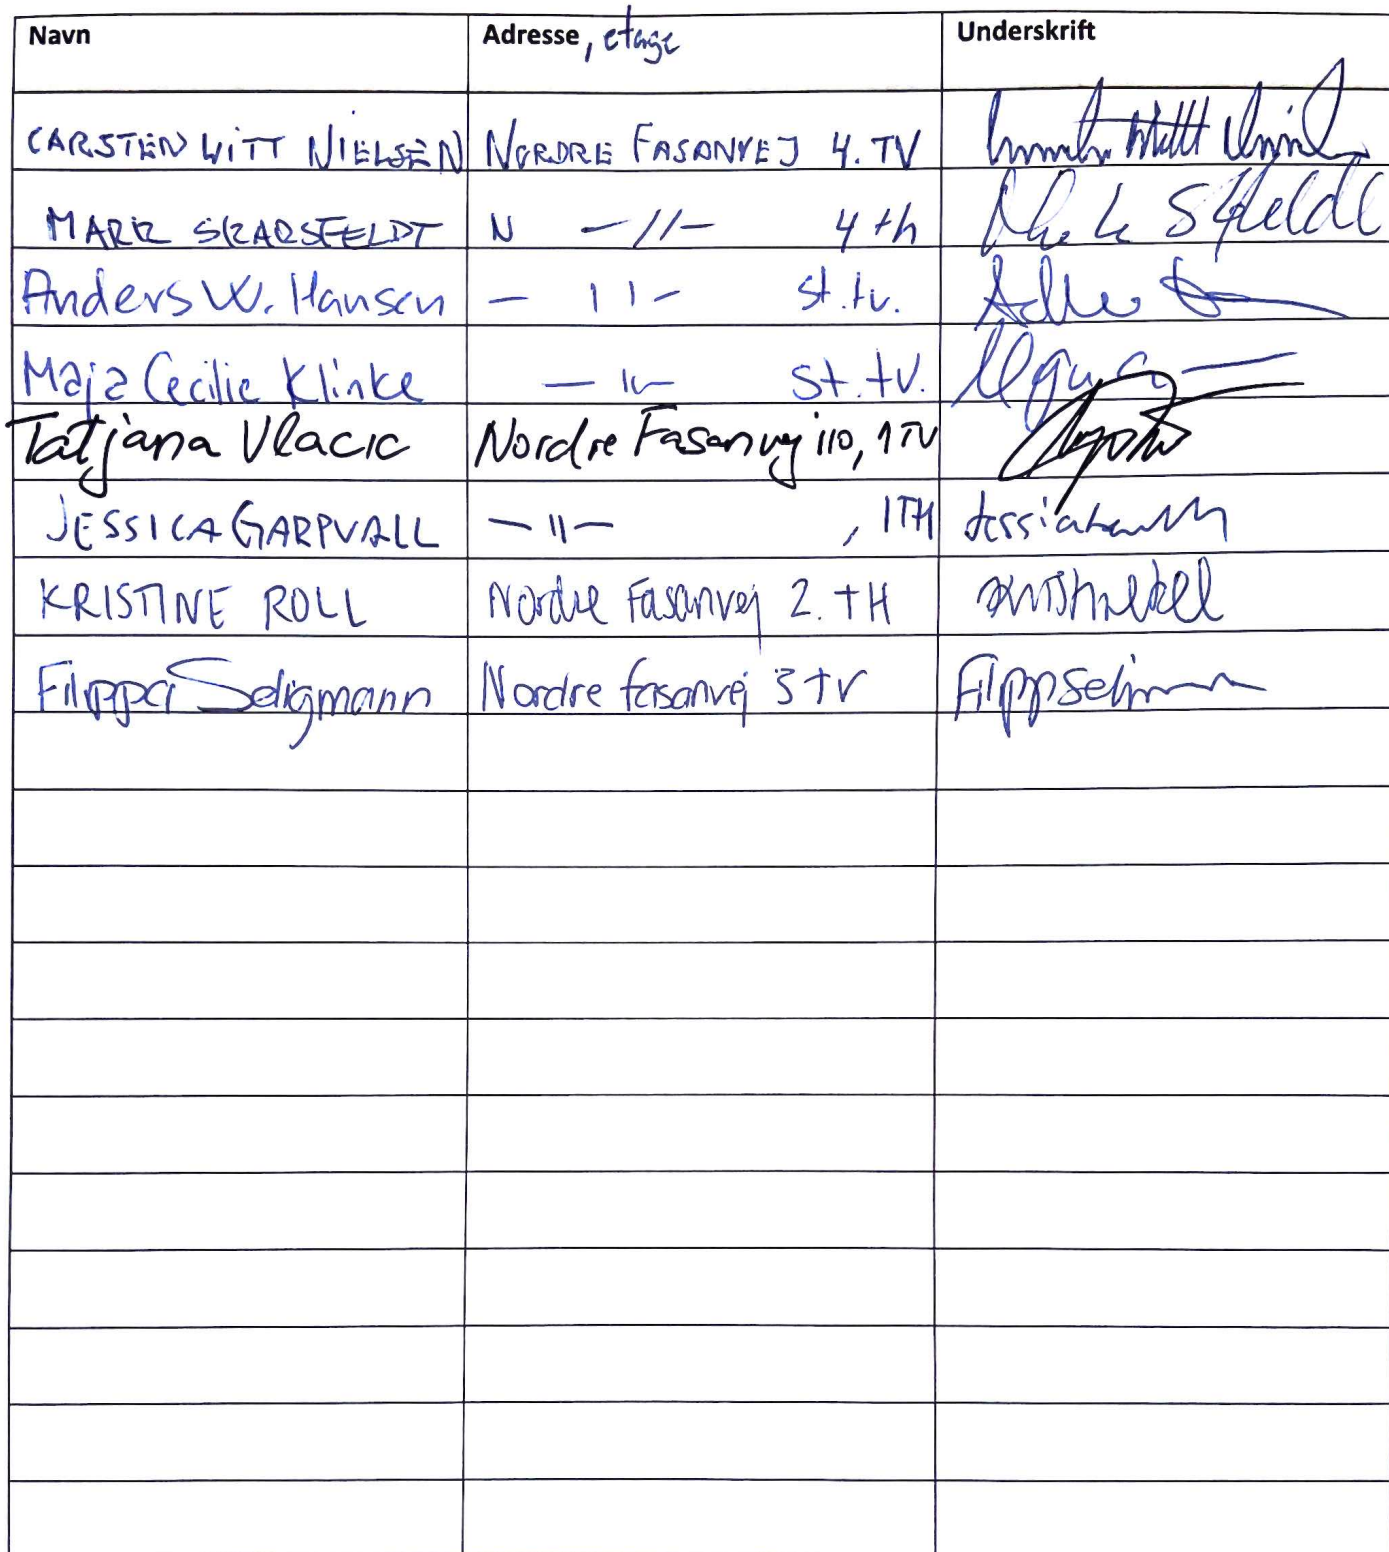 Navn Adresse, etage Underskrift
CARSTEN WITT NIELSEN NORDRE FASANVEJ 4. TV
MARK SKARSFELDT N —//— 4 th
Anders W. Hansen — 11 — st.tv.
Maja Cecilie Klinke — 11 — St. tv.
Tatjana Vlacic Nordre Fasanvej 110, 1 TV
JESSICA GARPVALL — 11 — , 1TH
KRISTINE ROLL Nordre Fasanvej 2. TH
Filippa Seligmann Nordre fasanvej 3 TV